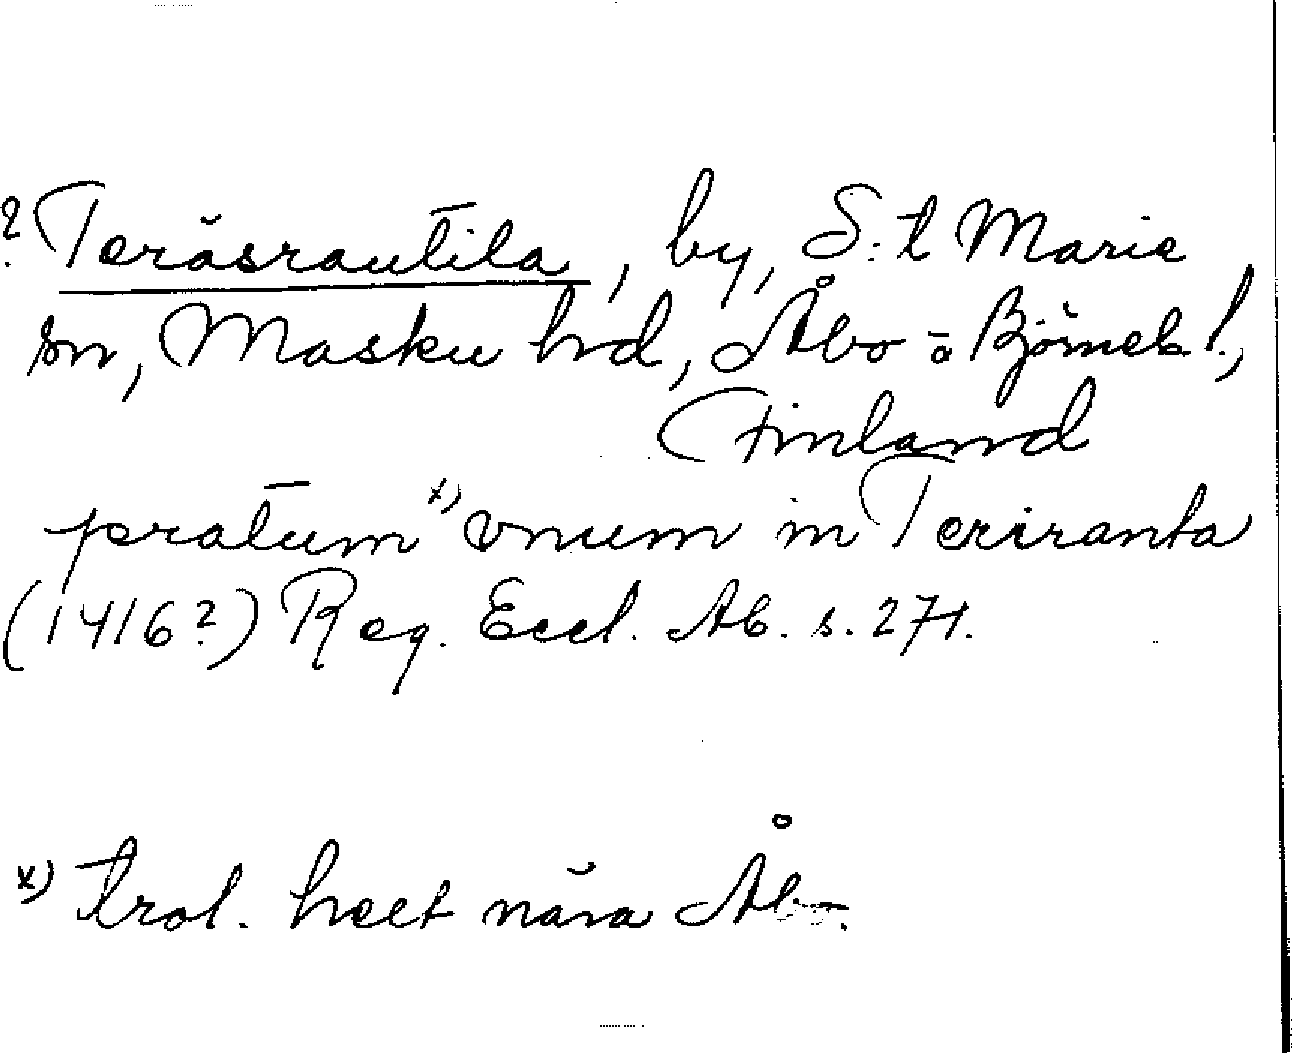 ? Teräsrautila, by, S:t Marie
sn, Masku hd, Åbo o Björneb. l.,
Finland
pratum x) vnum in Teriranta
(1416?) Reg. Eccl. Ab. s. 271.
x) trol. helt nära Åbo.